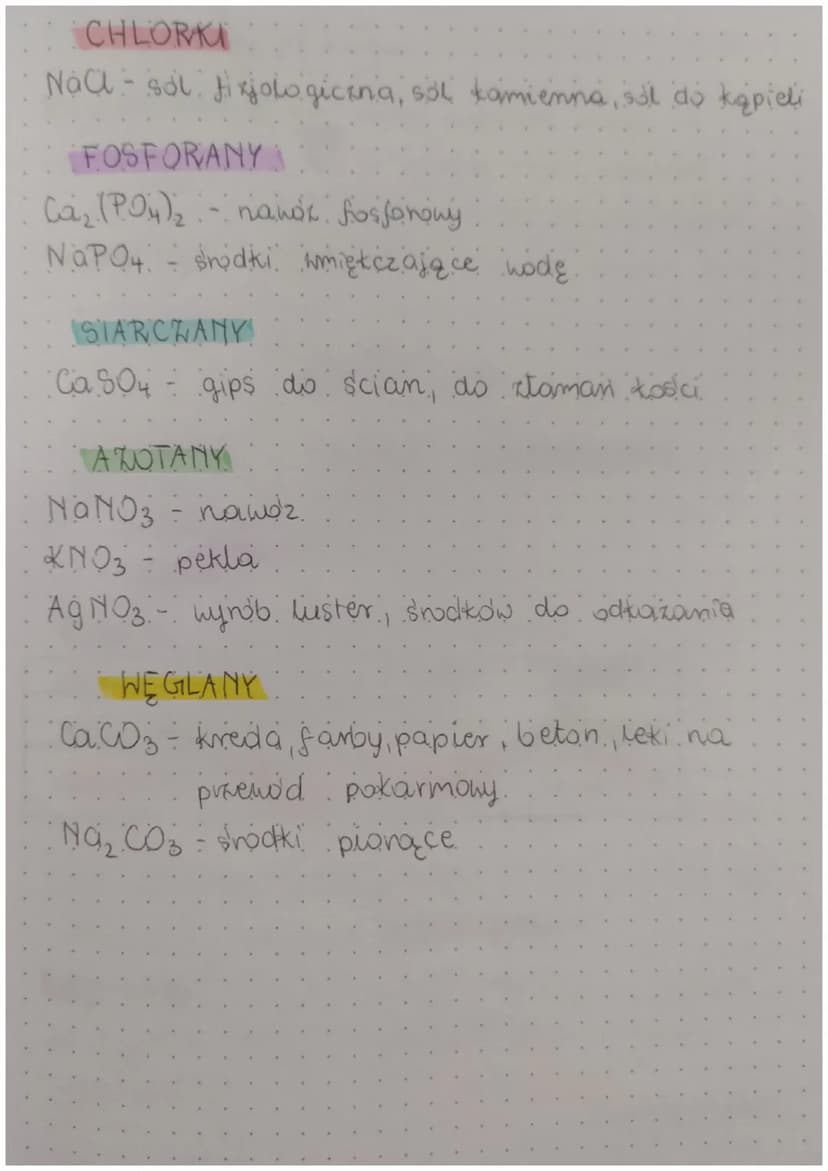 CHLORKI
NaCl - sól fizjologiczna, sól kamienna, sól do kąpieli
FOSFORANY
Ca₂(PO₄)₂ - nawóz fosforowy
NaPO₄ - środki zmiękczające wodę
SIARCZANY
CaSO₄ - gips do ścian, do złamań kości
AZOTANY
NaNO₃ - nawóz
KNO₃ - pekla
AgNO₃ - wyrób luster, środków do odkażania
WĘGLANY
CaCO₃ - kreda, farby, papier, beton, leki na
przewód pokarmowy
Na₂CO₃ - środki piorące